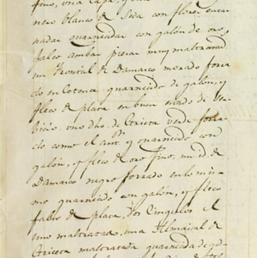 fino, una capa, y
nero blanco de Seda con flores encar
nadas guarnecidas con galon de oro
falso ambas piezas muy maltratadas
un Frontal de Damasco morado forra
do en Cotense guarnecido de galon, y
fleco de plata en buen estado de
otro dho. de verde
do como el antr. y guarnecido con
galon, y fleco de oro fino, un id. de
Damasco negro forrado en lo mis
mo guarnecido con galon, y fleco
falso de plata, Dos Cingulos el
uno maltratado, una Almaizal de
maltratada guarnecida de